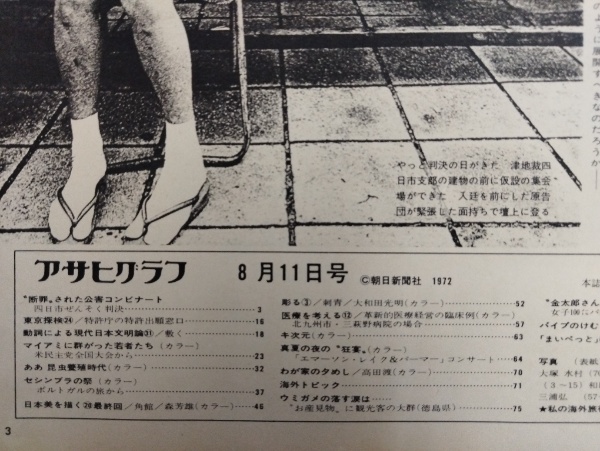 のように展開すべきなのだろうか——
やっと判決の日がきた 津地裁四
日市支部の建物の前に仮設の集会
場ができた 入廷を前にした原告
団が緊張した面持ちで壇上に登る
アサヒグラフ 8月11日号 ©朝日新聞社 1972
"断罪"された公害コンビナート
四日市ぜんそく判決 3
東京探検㉔/特許庁の特許出願窓口 16
動詞による現代日本文明論㉛/敷く 18
マイアミに群がった若者たち(カラー)
米民主党全国大会から 23
ああ 昆虫養殖時代(カラー) 32
セシンブラの祭(カラー)
ポルトガルの旅から 37
日本美を描く 最終回/角館/森芳雄(カラー) 46
彫る③/刺青/大和田光明(カラー) 52
医療を考える⑫/革新的医療経営の臨床例(カラー)
北九州市・三萩野病院の場合 57
キ次元(カラー) 63
真夏の夜の"狂宴"(カラー)
「エマーソン・レイク&パーマー」コンサート 64
わが家の夕めし/高田渡(カラー) 70
海外トピック 71
ウミガメの落す涙は——
"お産見物"に観光客の大群(徳島県) 75
本誌
"金太郎さん
女子100に
パイプのけむ
「まいぺっと」
写真 (表紙
大塚 水村(70
(3〜15)和田
三浦弘(57
★私の海外旅
3